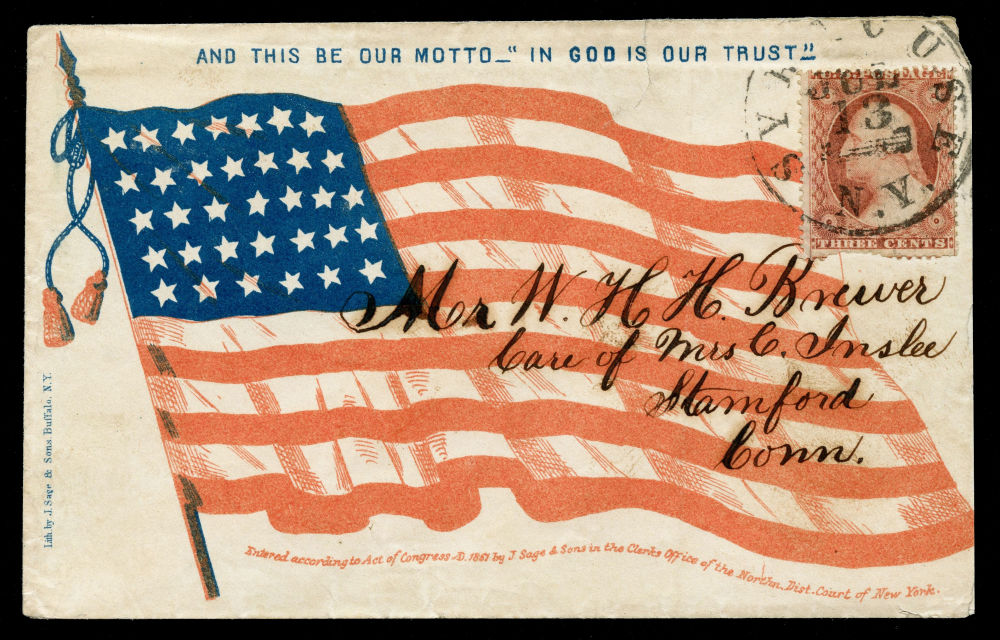 AND THIS BE OUR MOTTO_"IN GOD IS OUR TRUST"
SYRACUSE
JUL
13
N.Y.
THREE CENTS
Mr W. H. H. Brewer
Care of Mrs C. Inslee
Stamford
Conn.
Lith. by J. Sage & Sons Buffalo, N.Y.
Entered according to Act of Congress AD. 1861 by J Sage & Sons in the Clerks Office of the Northn. Dist. Court of New York.